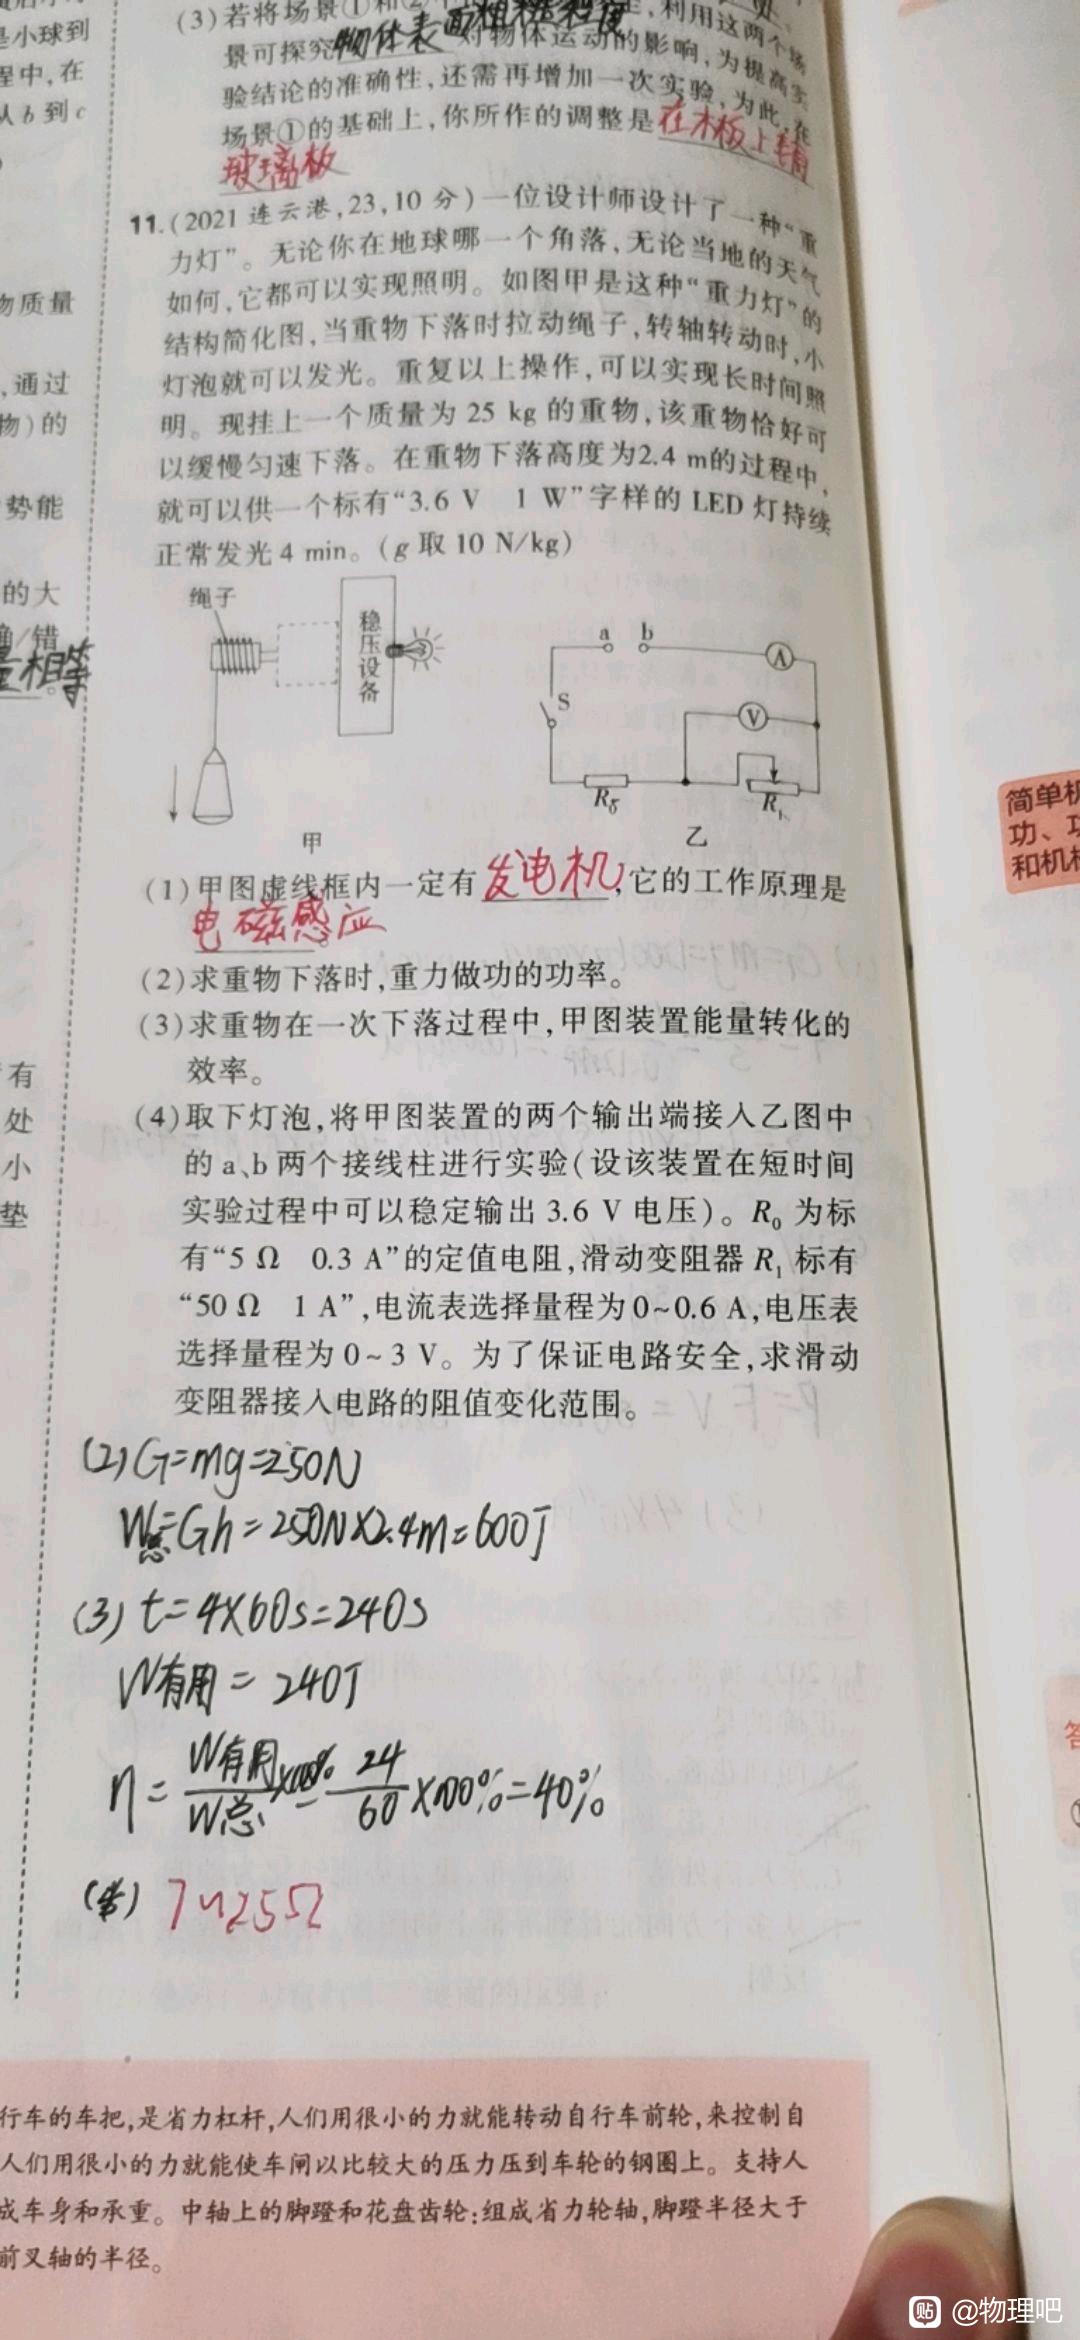 (3)若将场景①和②
,利用这两个场
景可探究物体表面粗糙程度对物体运动的影响,为提高实
验结论的准确性,还需再增加一次实验,为此,在
场景①的基础上,你所作的调整是在木板上
玻璃板
11.(2021 连云港,23,10 分)一位设计师设计了一种“重
力灯”。无论你在地球哪一个角落,无论当地的天气
如何,它都可以实现照明。如图甲是这种“重力灯”的
结构简化图,当重物下落时拉动绳子,转轴转动时,小
灯泡就可以发光。重复以上操作,可以实现长时间照
明。现挂上一个质量为 25 kg 的重物,该重物恰好可
以缓慢匀速下落。在重物下落高度为2.4 m的过程中,
就可以供一个标有“3.6 V 1 W”字样的 LED 灯持续
正常发光4 min。(g 取 10 N/kg)
绳子
稳压设备
甲
a b
A
S
V
R₀
R₁
乙
(1)甲图虚线框内一定有发电机,它的工作原理是
电磁感应。
(2)求重物下落时,重力做功的功率。
(3)求重物在一次下落过程中,甲图装置能量转化的
效率。
(4)取下灯泡,将甲图装置的两个输出端接入乙图中
的 a、b 两个接线柱进行实验(设该装置在短时间
实验过程中可以稳定输出 3.6 V 电压)。R₀ 为标
有“5 Ω 0.3 A”的定值电阻,滑动变阻器 R₁ 标有
“50 Ω 1 A”,电流表选择量程为0~0.6 A,电压表
选择量程为 0~3 V。为了保证电路安全,求滑动
变阻器接入电路的阻值变化范围。
(2) G=mg=250N
W总=Gh=250N×2.4m=600J
(3) t=4×60s=240s
W有用=240J
η=W有用/W总×100%=24/60×100%=40%
7~25Ω
行车的车把,是省力杠杆,人们用很小的力就能转动自行车前轮,来控制自
人们用很小的力就能使车闸以比较大的压力压到车轮的钢圈上。支持人
成车身和承重。中轴上的脚蹬和花盘齿轮:组成省力轮轴,脚蹬半径大于
前叉轴的半径。
是小球到
程中,在
从 b 到 c
物质量
,通过
物)的
势能
的大
确/错
量相等
有
处
小
垫
简单机
功、功
和机械
答
贴 @物理吧